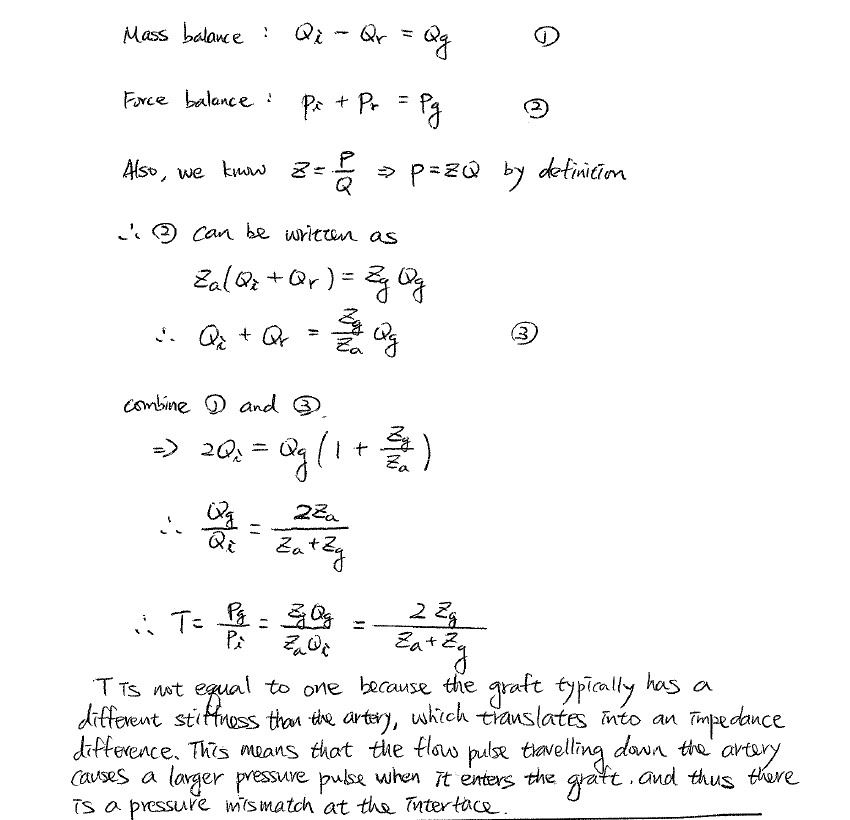 Mass balance : Qi − Qr = Qg ①
Force balance : Pi + Pr = Pg ②
Also, we know Z = P/Q ⇒ P = ZQ by definition
∴ ② can be written as
Za(Qi + Qr) = Zg Qg
∴ Qi + Qr = Zg/Za Qg ③
combine ① and ③.
⇒ 2Qi = Qg (1 + Zg/Za)
∴ Qg/Qi = 2Za/(Za+Zg)
∴ T = Pg/Pi = ZgQg/ZaQi = 2Zg/(Za+Zg)
T is not equal to one because the graft typically has a
different stiffness than the artery, which translates into an impedance
difference. This means that the flow pulse travelling down the artery
causes a larger pressure pulse when it enters the graft. and thus there
is a pressure mismatch at the interface.